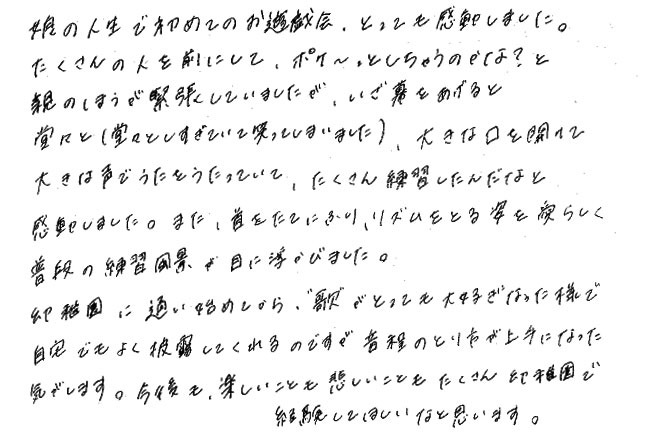 娘の人生で初めてのお遊戯会、とっても感動しました。
たくさんの人を前にして、ポケ〜っとしちゃうのかな?と
親のほうが緊張していましたが、いざ幕をあげると
堂々と(堂々としすぎていて笑ってしまいました)、大きな口を開けて
大きな声でうたをうたっていて、たくさん練習したんだなと
感動しました。また、首をたてにふり、リズムをとる姿を愛らしく
普段の練習風景が目に浮かびました。
幼稚園に通い始めてから、"歌"がとっても大好きになった様で
自宅でもよく披露してくれるのですが音程のとり方が上手になった
気がします。今後も、楽しいことも悲しいこともたくさん幼稚園で
経験してほしいなと思います。